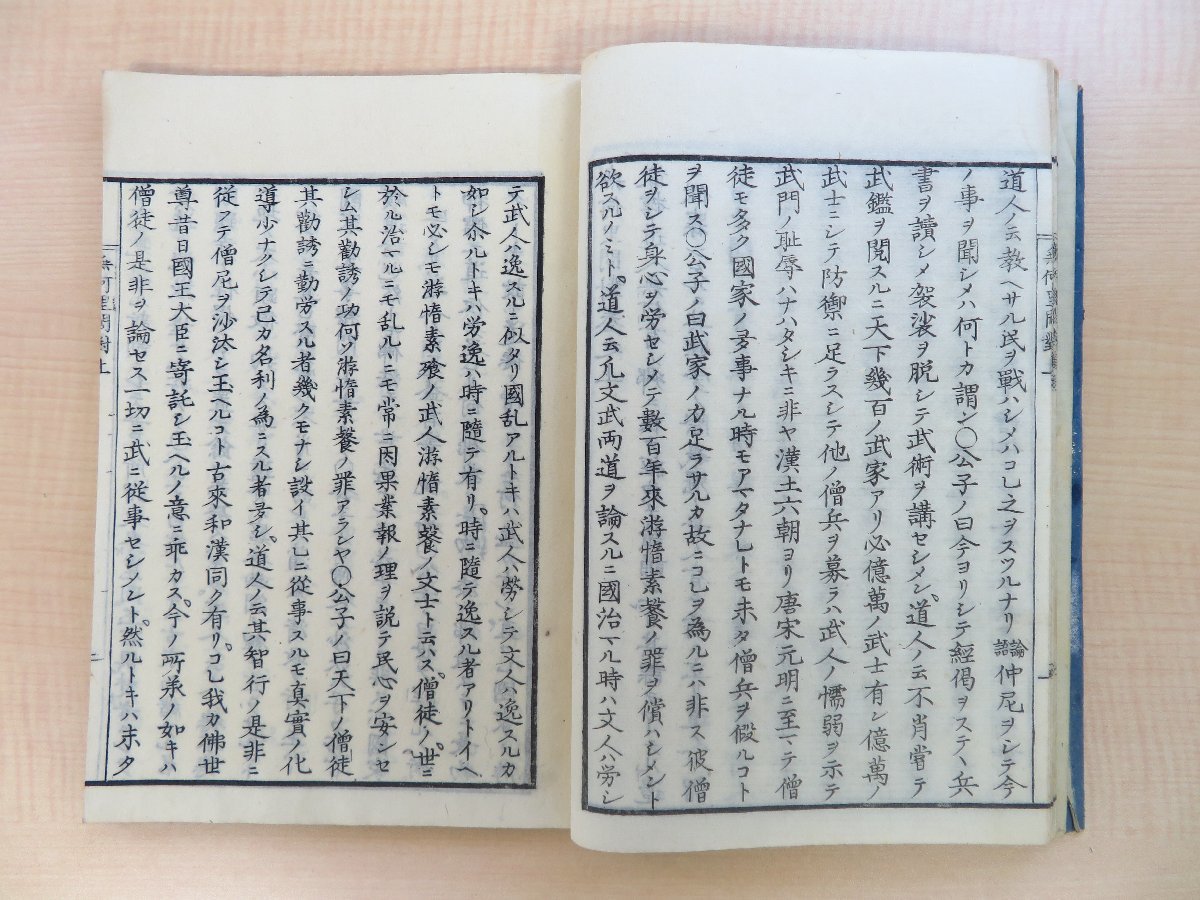 道人ノ云教ヘサル民ヲ戰ハシメハコレ之ヲスツルナリ論語仲尼ヲシテ今
ノ事ヲ聞シメハ何トカ謂ン〇公子ノ曰今ヨリシテ經偈ヲステヽ兵
書ヲ讀シメ袈裟ヲ脱シテ武術ヲ講セシメン道人ノ云不肖嘗テ
武鑑ヲ閲スルニ天下幾百ノ武家アリ必億萬ノ武士有シ億萬ノ
武士ニシテ防禦ニ足ラスシテ他ノ僧兵ヲ募ラハ武人ノ懦弱ヲ示テ
武門ノ恥辱ハナハタシキニ非ヤ漢土六朝ヨリ唐宋元明ニ至マテ僧
徒モ多ク國家ノ多事ナル時モアマタナレトモ未タ僧兵ヲ假ルコト
ヲ聞ス〇公子ノ曰武家ノ力足ラサルカ故ニコレヲ為ルニハ非ス彼僧
徒ヲシテ身心ヲ労セシメテ數百年來游惰素餐ノ罪ヲ償ハシメント
欲スルノミト。道人云凡文武両道ヲ論スルニ國治マル時ハ文人ハ労シ
テ武人ハ逸スルニ似タリ國乱アルトキハ武人ハ勞シテ文人ハ逸スルカ
如シ尒ルトキハ労逸ハ時ニ隨テ有リ。時ニ隨テ逸スル者アリトイヘ
トモ必シモ游惰素飱ノ武人游惰素餐ノ文士ト云ハス。僧徒ノ。世ニ
於ル治マルニモ乱ルヽニモ常ニ因果業報ノ理ヲ説テ民心ヲ安ンセ
シム其勸誘ノ功何ソ游惰素餐ノ罪アランヤ〇公子ノ曰天下ノ僧徒
其勸誘ニ勤労スル者幾クモナシ設イ其レニ從事スルモ真實ノ化
導少ナクシテ己カ名利ノ為ニスル者多シ。道人ノ云其智行ノ是非ニ
從フテ僧尼ヲ沙汰シ玉ヘルコト古來和漢同ク有リ。コレ我カ佛世
尊昔日國王大臣ニ寄託シ玉ヘルノ意ニ乖カス。今ノ所承ノ如キハ
僧徒ノ是非ヲ論セス一切ニ武ニ從事セシメント。然ルトキハ未タ